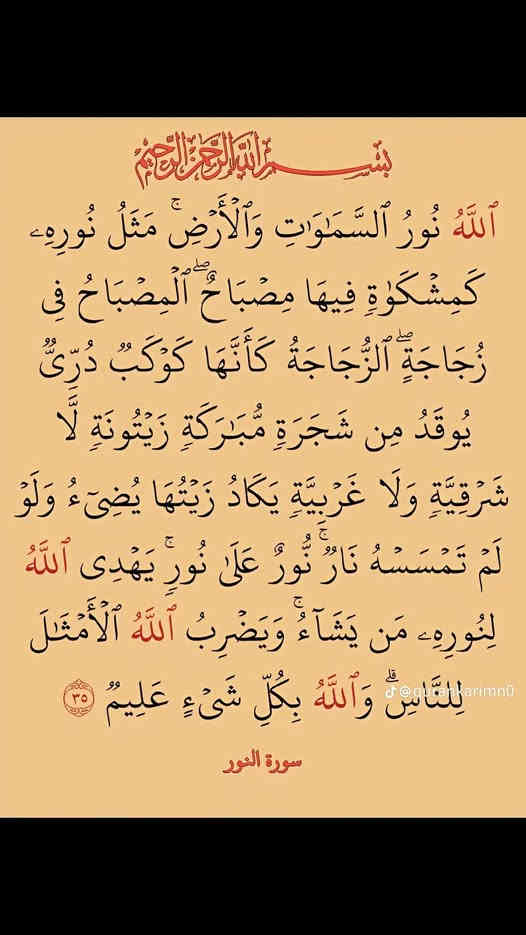 بِسْمِ ٱللَّهِ ٱلرَّحْمَٰنِ ٱلرَّحِيمِ
ٱللَّهُ نُورُ ٱلسَّمَٰوَٰتِ وَٱلْأَرْضِ ۚ مَثَلُ نُورِهِۦ
كَمِشْكَوٰةٍ فِيهَا مِصْبَاحٌ ۖ ٱلْمِصْبَاحُ فِى
زُجَاجَةٍ ۖ ٱلزُّجَاجَةُ كَأَنَّهَا كَوْكَبٌ دُرِّىٌّ
يُوقَدُ مِن شَجَرَةٍ مُّبَٰرَكَةٍ زَيْتُونَةٍ لَّا
شَرْقِيَّةٍ وَلَا غَرْبِيَّةٍ يَكَادُ زَيْتُهَا يُضِىٓءُ وَلَوْ
لَمْ تَمْسَسْهُ نَارٌ ۚ نُّورٌ عَلَىٰ نُورٍ ۗ يَهْدِى ٱللَّهُ
لِنُورِهِۦ مَن يَشَآءُ ۚ وَيَضْرِبُ ٱللَّهُ ٱلْأَمْثَٰلَ
لِلنَّاسِ ۗ وَٱللَّهُ بِكُلِّ شَىْءٍ عَلِيمٌ ٣٥
@qurankarimn0
سورة النور